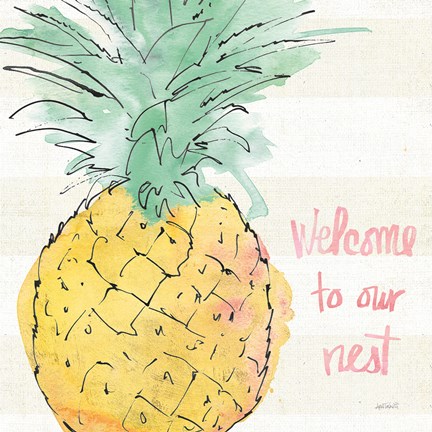 Welcome
to our
nest